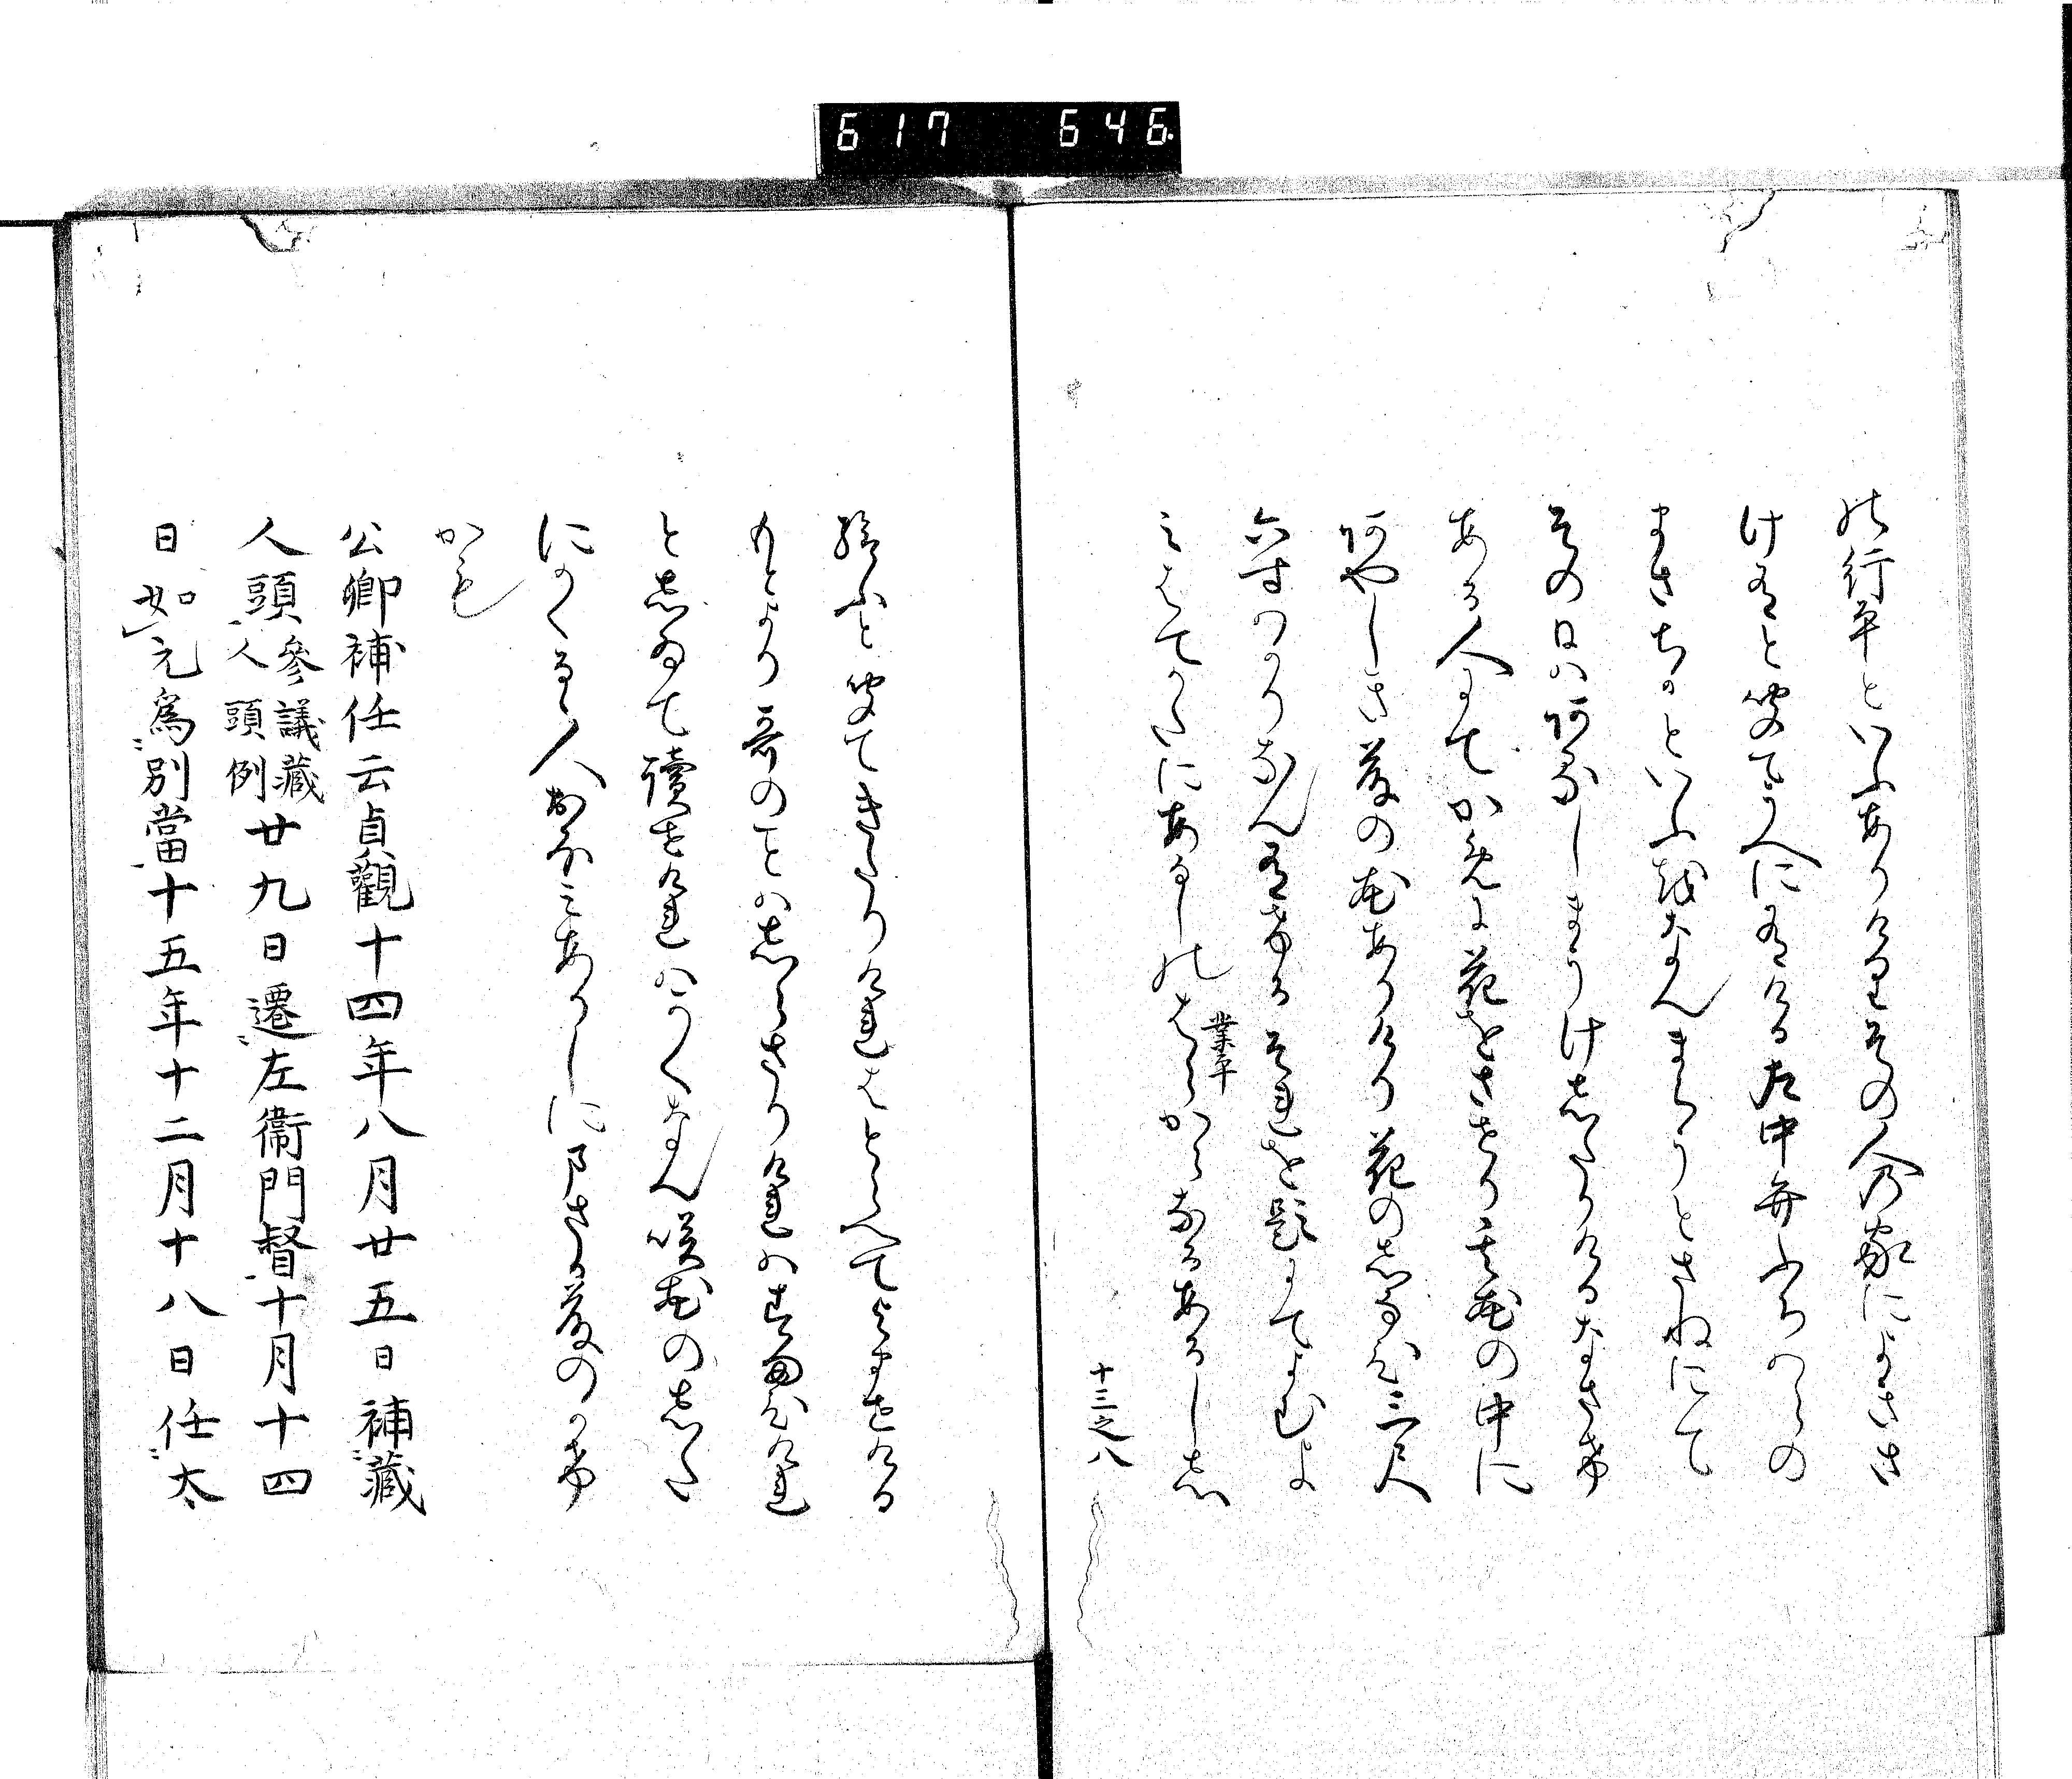 617 646
の行平といふありけりその人の家によきさ
け有と聞てうへに有ける左中弁ふちはらの
まさちかといふをなんまらうとさねにて
その日はあるしまうけしたりけるなさけ
ある人にてかめに花をさせり其花の中に
あやしき藤の花ありけり花のしなひ三尺
六寸はかりなん有けるそれを題にてよむよ
みはてかたにあるしのはらからなるあるしし
業平
十三之八
給ふと聞てきたりけれはとらへてよませける
もとより哥のことはしらさりけれはすまひけれ
としゐて讀せけれはかくなん咲花のした
にかくるゝ人おほみありしにまさる藤のかけ
かも
公卿補任云貞觀十四年八月廿五日補藏
人頭參議藏人頭例廿九日遷左衞門督十月十四
日如元爲別當十五年十二月十八日任太